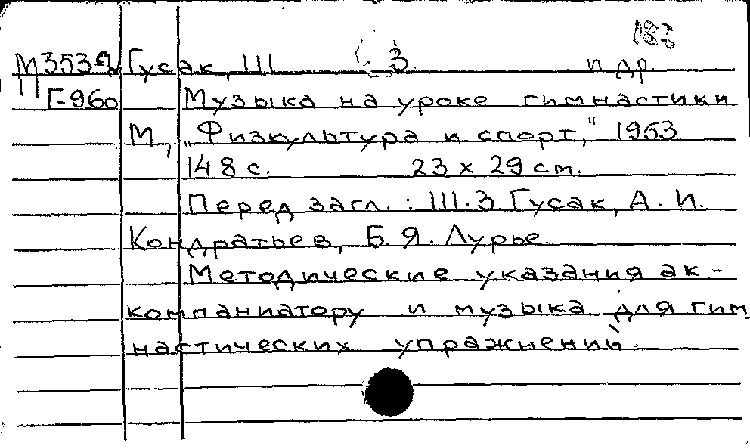 183
М3532 Гусак, Ш З. и др
П Г-960 Музыка на уроке гимнастики
М, „Физкультура и спорт," 1963
148 с. 23 x 29 см.
Перед загл. : Ш.З Гусак, А. И.
Кондратьев, Б. Я. Лурье
Методические указания ак-
компаниатору и музыка для гим
настических упражнений